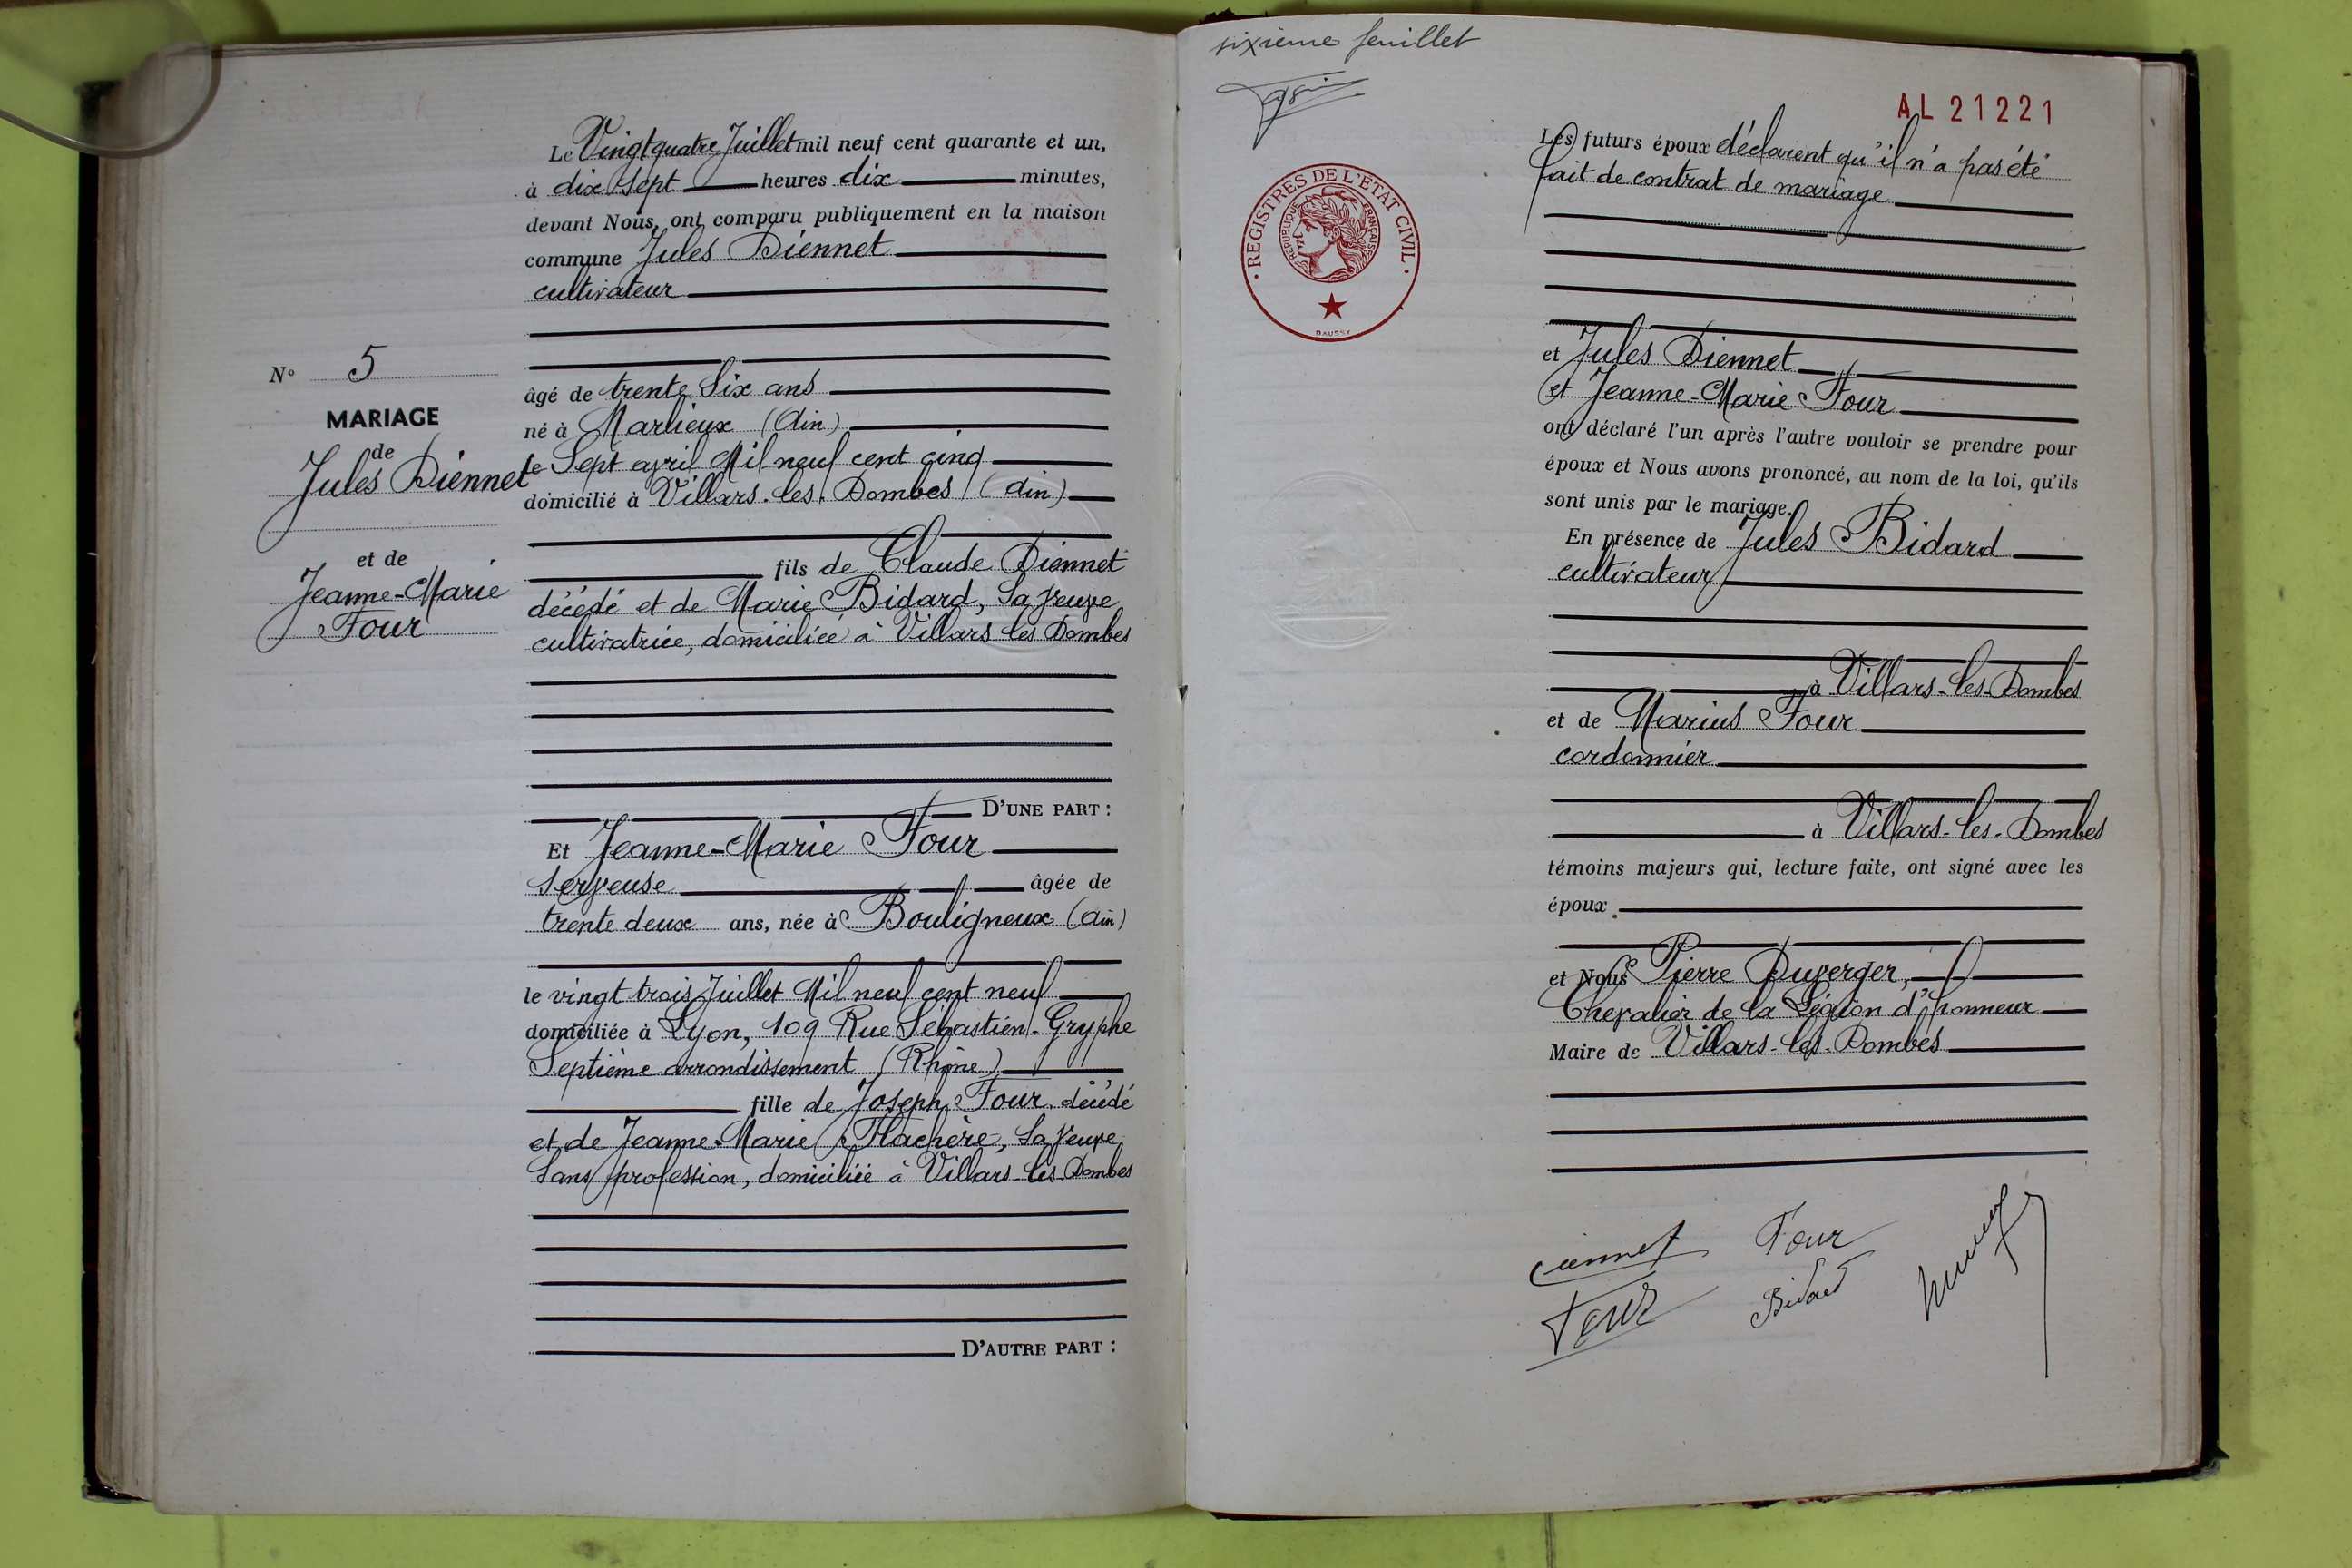 Le Vingt quatre Juillet mil neuf cent quarante et un,
à dix sept heures dix minutes,
devant Nous, ont comparu publiquement en la maison
commune Jules Diennet
cultivateur
âgé de trente six ans
né à Marlieux (Ain)
le Sept avril Mil neuf cent cinq
domicilié à Villars-les-Dombes (Ain)
fils de Claude Diennet
décédé et de Marie Bidard, sa veuve
cultivatrice, domiciliée à Villars les Dombes
D'UNE PART :
Et Jeanne-Marie Four
serveuse âgée de
trente deux ans, née à Bouligneux (Ain)
le vingt trois Juillet Mil neuf cent neuf
domiciliée à Lyon, 109 Rue Sébastien-Gryphe
Septième arrondissement (Rhône)
fille de Joseph Four décédé
et de Jeanne-Marie Flachère, sa veuve
sans profession, domiciliée à Villars-les-Dombes
D'AUTRE PART :
N° 5
MARIAGE
de
Jules Diennet
et de
Jeanne-Marie
Four
sixième feuillet
REGISTRES DE L'ETAT CIVIL
REPUBLIQUE FRANÇAISE
DAUSSY
AL 21221
Les futurs époux déclarent qu'il n'a pas été
fait de contrat de mariage
et Jules Diennet
et Jeanne-Marie Four
ont déclaré l'un après l'autre vouloir se prendre pour
époux et Nous avons prononcé, au nom de la loi, qu'ils
sont unis par le mariage.
En présence de Jules Bidard
cultivateur
à Villars-les-Dombes
et de Marius Four
cordonnier
à Villars-les-Dombes
témoins majeurs qui, lecture faite, ont signé avec les
époux.
et Nous Pierre Duverger,
Chevalier de la Légion d'honneur
Maire de Villars-les-Dombes
Four
Four
Bidard